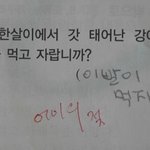 한살이에서 갓 태어난 강
먹고 자랍니까?
(이빨이
먹지
어미의 젖